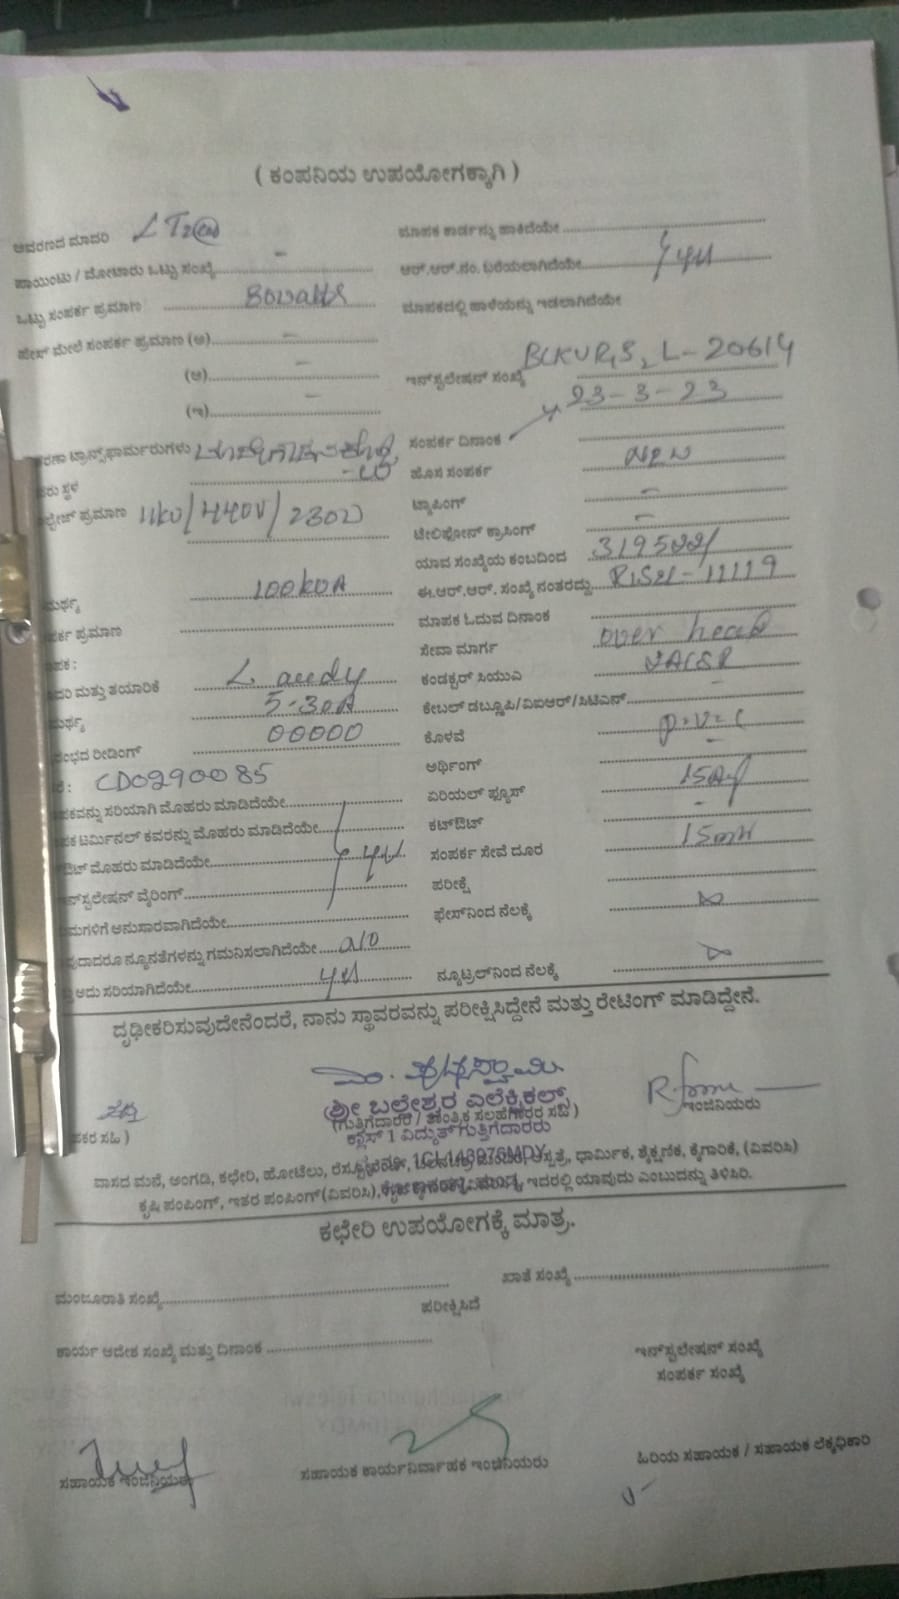 ( ಕಂಪನಿಯ ಉಪಯೋಗಕ್ಕಾಗಿ )
ಆವರಣದ ಮಾದರಿ LT2
ಮಾಪಕ ಕಾರ್ಡನ್ನು ಹಾಕಿದೆಯೇ
ಪಾಯಿಂಟು / ಮೋಟಾರು ಒಟ್ಟು ಸಂಖ್ಯೆ -
ಆರ್.ಆರ್.ನಂ. ಬರೆಯಲಾಗಿದೆಯೇ yes
ಒಟ್ಟು ಸಂಪರ್ಕ ಪ್ರಮಾಣ 80watts
ಮಾಪಕದಲ್ಲಿ ಹಾಳೆಯನ್ನು ಇಡಲಾಗಿದೆಯೇ
ಫೇಸ್ ಮೇಲೆ ಸಂಪರ್ಕ ಪ್ರಮಾಣ (ಅ) -
(ಆ) -
ಇನ್‌ಸ್ಟಲೇಷನ್ ಸಂಖ್ಯೆ L-20614
(ಇ) -
23-3-23
ರಣಾ ಟ್ರಾನ್ಸ್‌ಫಾರ್ಮರುಗಳು
ಸಂಪರ್ಕ ದಿನಾಂಕ
ರು ಸ್ಥಳ
ಹೊಸ ಸಂಪರ್ಕ new
ಲ್ಟೇಜ್ ಪ್ರಮಾಣ 11kv/440V/230V
ಟ್ಯಾಪಿಂಗ್ -
ಟೇಲಿಫೋನ್ ಕ್ರಾಸಿಂಗ್ -
ಯಾವ ಸಂಖ್ಯೆಯ ಕಂಬದಿಂದ
ಮರ್ಥ್ಯ 100kVA
ಈ.ಆರ್.ಆರ್. ಸಂಖ್ಯೆ ನಂತರದ್ದು -11119
ರ್ಕ ಪ್ರಮಾಣ
ಮಾಪಕ ಓದುವ ದಿನಾಂಕ
ಪಕ :
ಸೇವಾ ಮಾರ್ಗ over head
ದರಿ ಮತ್ತು ತಯಾರಿಕೆ
ಕಂಡಕ್ಟರ್ ಸಿಯುಎ
ಮರ್ಥ್ಯ 5-30A
ಕೇಬಲ್ ಡಬ್ಲೂಪಿ/ವಿಐಆರ್/ಸಿಟಿಎಸ್ -
ರಂಭದ ರೀಡಿಂಗ್ 00000
ಕೊಳವೆ p.v.c
: CD0290085
ಅರ್ಥಿಂಗ್ -
ಪಕವನ್ನು ಸರಿಯಾಗಿ ಮೊಹರು ಮಾಡಿದೆಯೇ
ಏರಿಯಲ್ ಫ್ಯೂಸ್
ಪಕ ಟರ್ಮಿನಲ್ ಕವರನ್ನು ಮೊಹರು ಮಾಡಿದೆಯೇ
ಕಟ್‌ಔಟ್ -
ಔಟ್ ಮೊಹರು ಮಾಡಿದೆಯೇ yes
ಸಂಪರ್ಕ ಸೇವೆ ದೂರ 15mtr
ನ್‌ಸ್ಟಲೇಷನ್ ವೈರಿಂಗ್
ಪರೀಕ್ಷೆ
ಮಗಳಿಗೆ ಅನುಸಾರವಾಗಿದೆಯೇ
ಫೇಸ್‌ನಿಂದ ನೆಲಕ್ಕೆ ∞
ವುದಾದರೂ ನ್ಯೂನತೆಗಳನ್ನು ಗಮನಿಸಲಾಗಿದೆಯೇ no
ಅದು ಸರಿಯಾಗಿದೆಯೇ yes
ನ್ಯೂಟ್ರಲ್‌ನಿಂದ ನೆಲಕ್ಕೆ ∞
ದೃಢೀಕರಿಸುವುದೇನೆಂದರೆ, ನಾನು ಸ್ಥಾವರವನ್ನು ಪರೀಕ್ಷಿಸಿದ್ದೇನೆ ಮತ್ತು ರೇಟಿಂಗ್ ಮಾಡಿದ್ದೇನೆ.
ಶ್ರೀ ಬಲ್ಲೇಶ್ವರ ಎಲೆಕ್ಟ್ರಿಕಲ್ಸ್
(ಗುತ್ತಿಗೆದಾರರ / ತಾಂತ್ರಿಕ ಸಲಹೆಗಾರರ ಸಹಿ)
ಇಂಜಿನಿಯರು
ಸಹಿ
ಕರ ಸಹಿ )
ಕ್ಲಾಸ್ 1 ವಿದ್ಯುತ್ ಗುತ್ತಿಗೆದಾರರು
ವಾಸದ ಮನೆ, ಅಂಗಡಿ, ಕಛೇರಿ, ಹೋಟೆಲು, ಆಸ್ಪತ್ರೆ, ಧಾರ್ಮಿಕ, ಶೈಕ್ಷಣಿಕ, ಕೈಗಾರಿಕೆ, (ವಿವರಿಸಿ)
ಕೃಷಿ ಪಂಪಿಂಗ್, ಇತರ ಪಂಪಿಂಗ್ (ವಿವರಿಸಿ), ಇದರಲ್ಲಿ ಯಾವುದು ಎಂಬುದನ್ನು ತಿಳಿಸಿರಿ.
ಕಛೇರಿ ಉಪಯೋಗಕ್ಕೆ ಮಾತ್ರ.
ಮಂಜೂರಾತಿ ಸಂಖ್ಯೆ
ಖಾತೆ ಸಂಖ್ಯೆ
ಪರೀಕ್ಷಿಸಿದೆ
ಕಾರ್ಯ ಆದೇಶ ಸಂಖ್ಯೆ ಮತ್ತು ದಿನಾಂಕ
ಇನ್‌ಸ್ಟಲೇಷನ್ ಸಂಖ್ಯೆ
ಸಂಪರ್ಕ ಸಂಖ್ಯೆ
ಸಹಾಯಕ ಇಂಜಿನಿಯರು
ಸಹಾಯಕ ಕಾರ್ಯನಿರ್ವಾಹಕ ಇಂಜಿನಿಯರು
ಹಿರಿಯ ಸಹಾಯಕ / ಸಹಾಯಕ ಲೆಕ್ಕಾಧಿಕಾರಿ